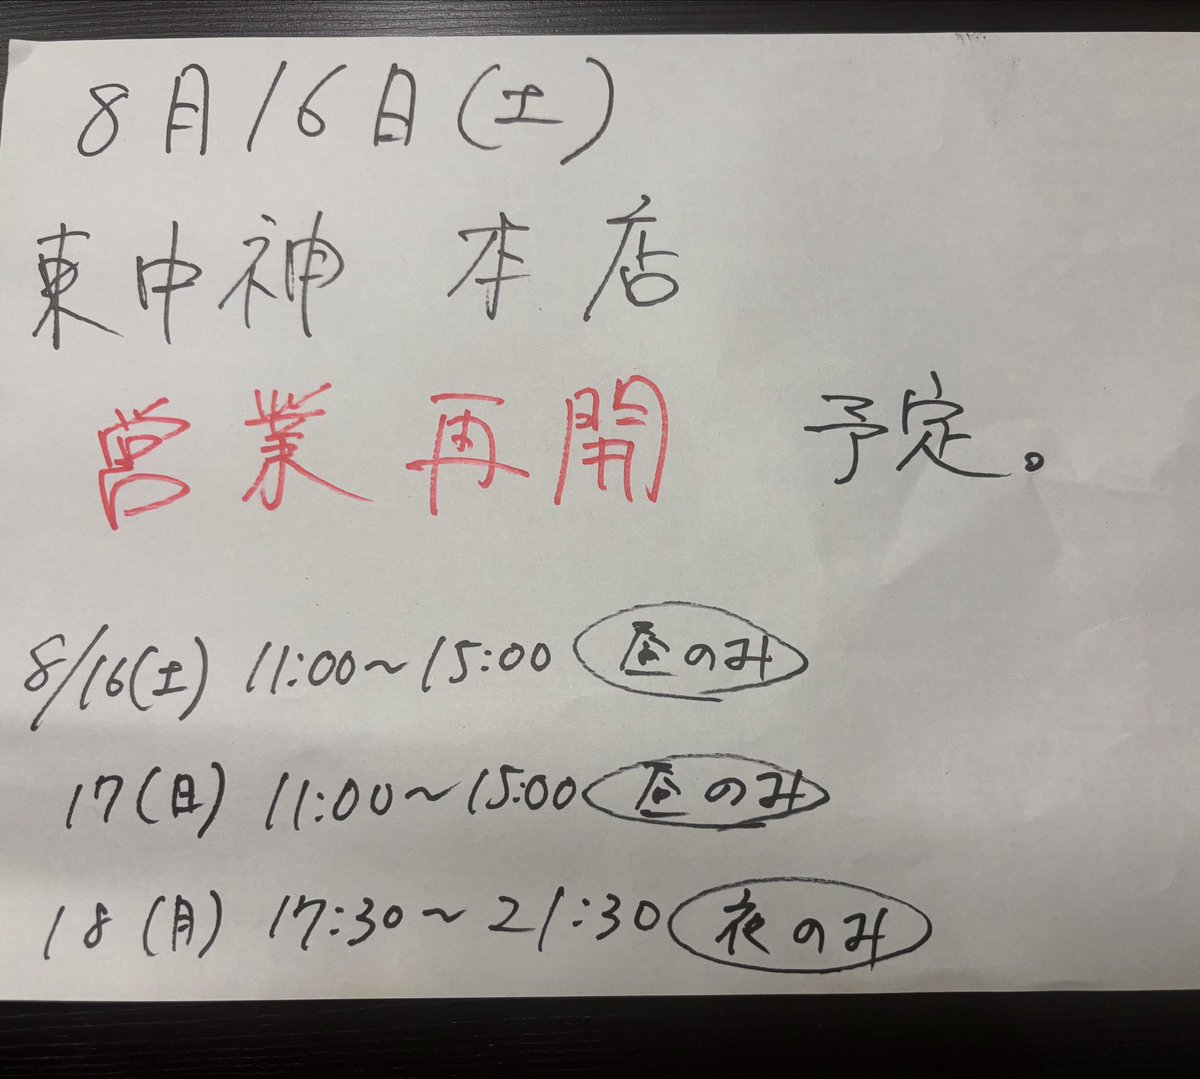 8月16日(土)
東中神 本店
営業再開 予定。
8/16(土) 11:00〜15:00 昼のみ
17(日) 11:00〜15:00 昼のみ
18(月) 17:30〜21:30 夜のみ